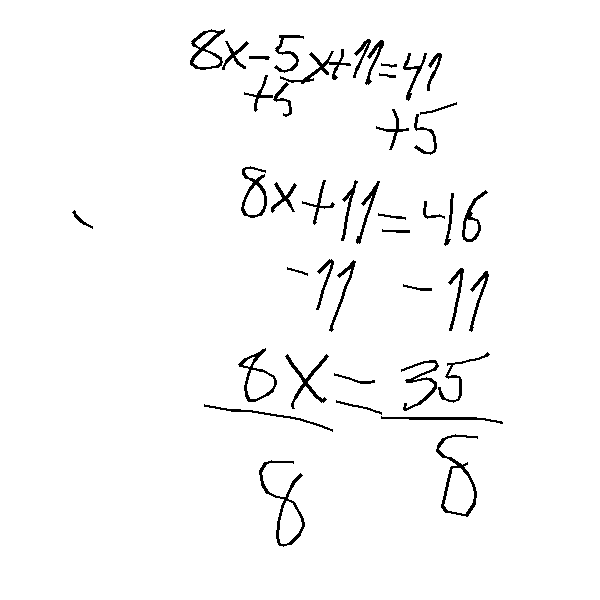 8x-5x+11=41
+5 +5
8x+11=46
-11 -11
8x=35
8 8